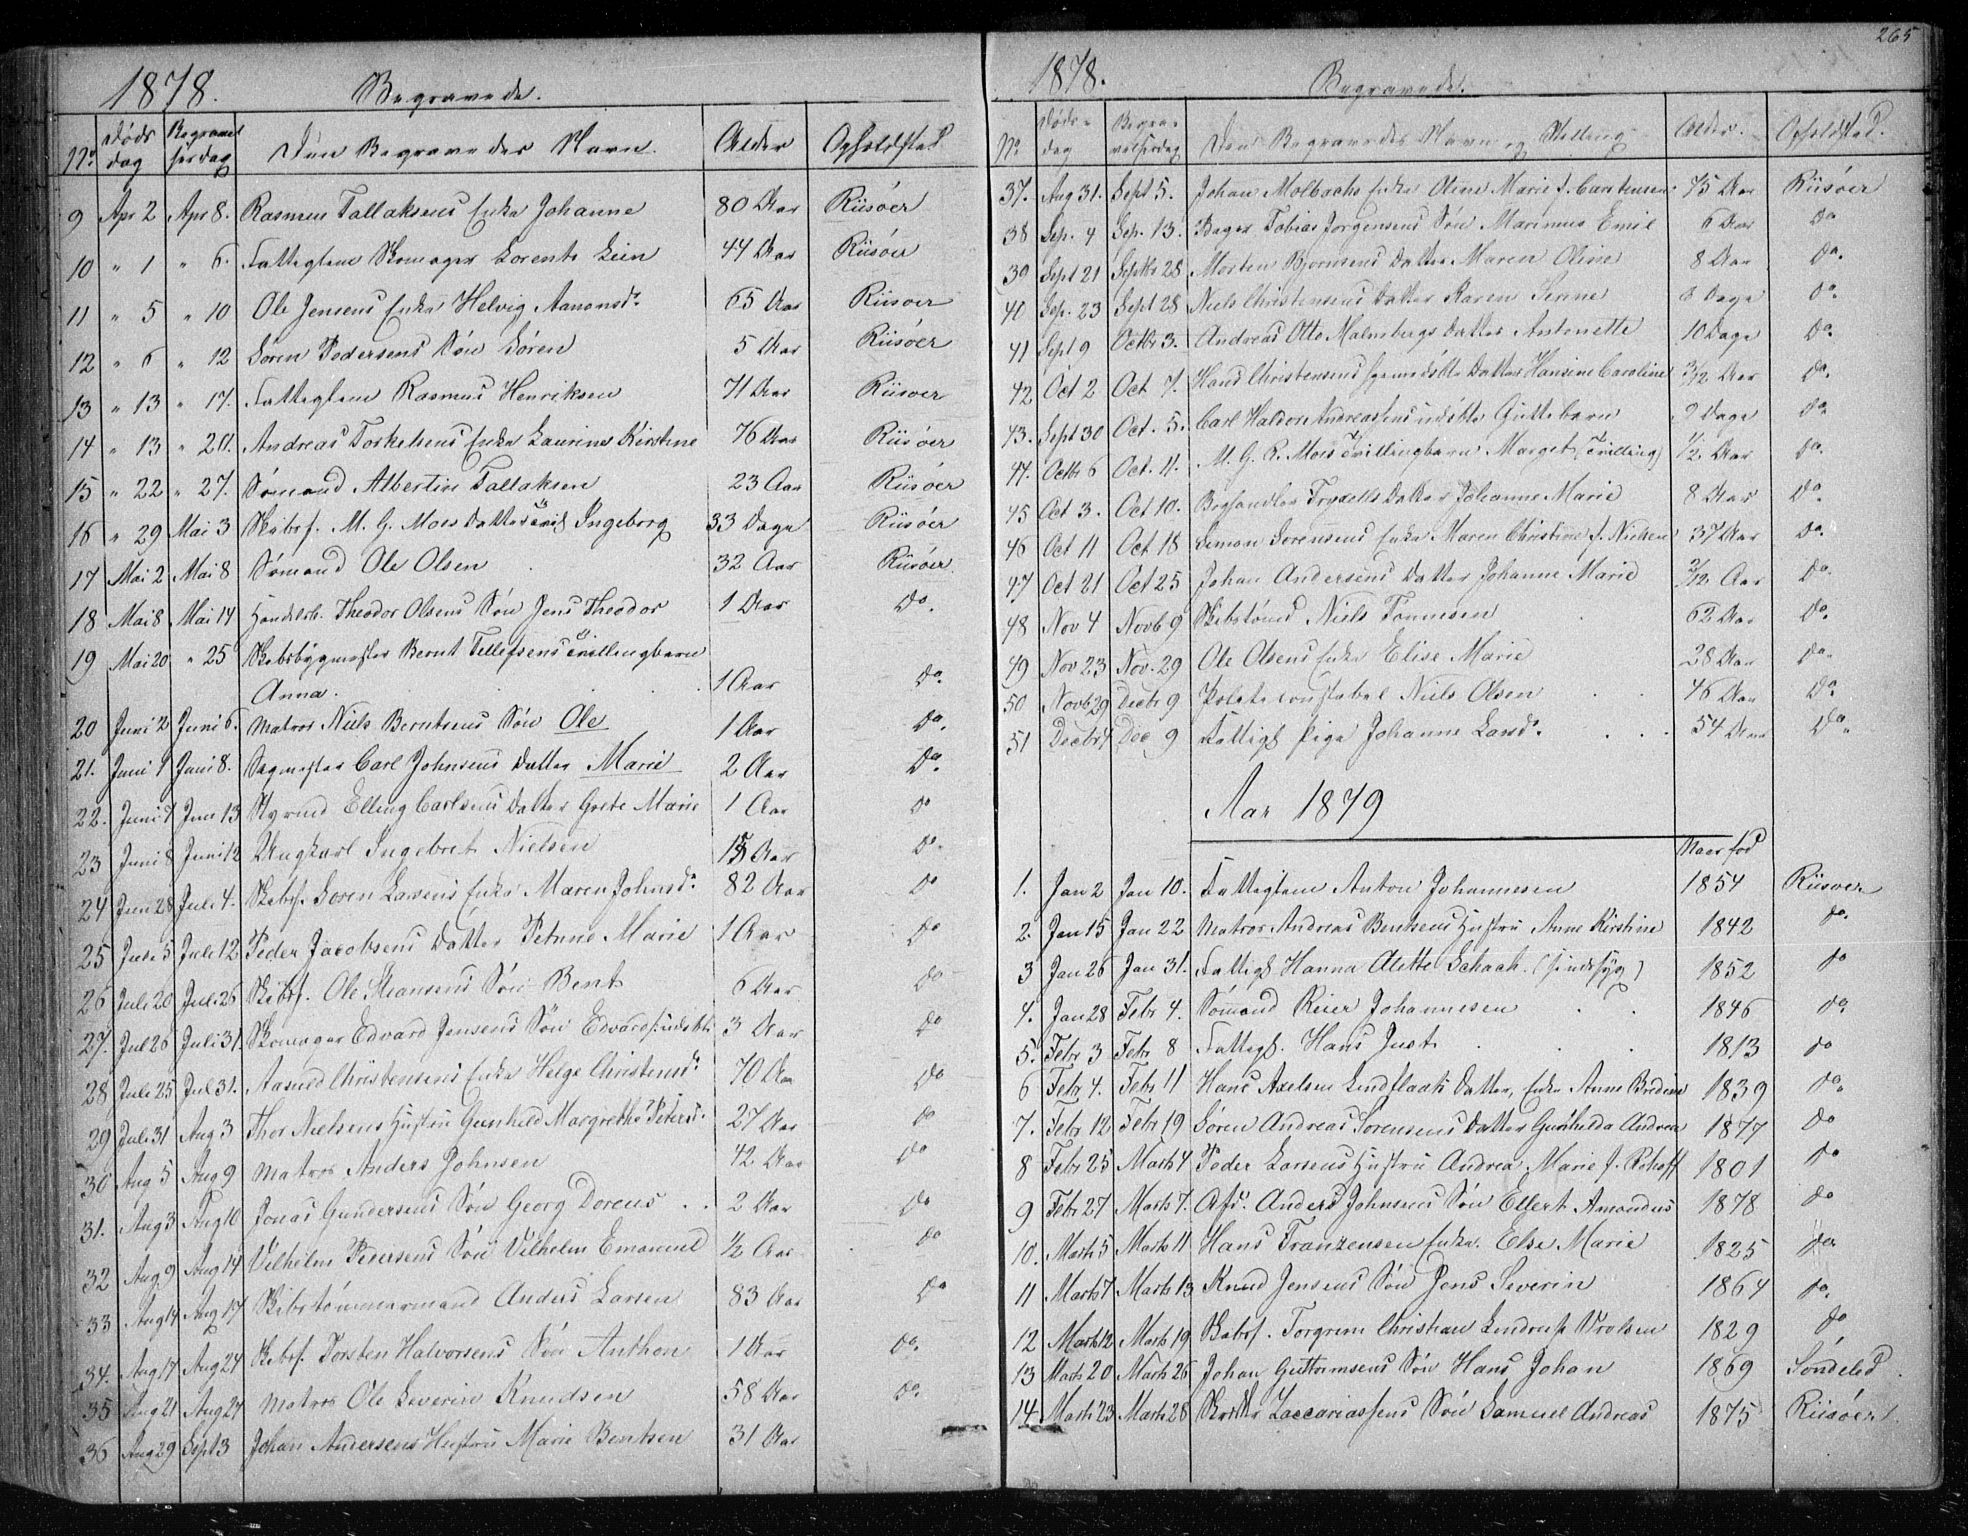 265
1878.
Begravede.
No Døds dag Begravelsesdag Den Begravedes Navn. Alder Opholdsted
9 Apr 2 Apr 8. Rasmus Tallaksens Enke Johanne 80 Aar Riisöer
10 " 1 " 6. Fattiglem Skomager Lorents Lien 44 Aar Riisöer
11 " 5 " 10 Ole Jensens Enke Helvig Aanonsdr 65 Aar Riisöer
12 " 6 " 12 Sören Pedersens Sön Sören 5 Aar Riisöer
13 " 13 " 17. Fattiglem Rasmus Henriksen 71 Aar Riisöer
14 " 13 " 20. Andreas Torkelsens Enke Laurine Kirstine 76 Aar Riisöer
15 " 22 " 27. Sömand Albertin Tallaksen 23 Aar Riisöer
16 " 29 Mai 3 Skibsf. M. G. Moes Datter Ingeborg 33 Dage Riisöer
17 Mai 2 Mai 8 Sömand Ole Olsen 32 Aar Riisöer.
18 Mai 8 Mai 14 Handelsb. Theodor Olsens Sön Jens Theodor 1 Aar Do.
19 Mai 20 " 25 Skibsbygmester Bernt Tellefsens Tvillingbarn
Anna. 1 Aar Do.
20 Juni 2 Juni 6. Matros Niels Berntsens Sön Ole 1 Aar Do.
21. Juni 1 Juni 8. Sagmester Carl Johnsens Datter Marie 2 Aar Do.
22. Juni 7 Juni 13 Styrmd Elling Carlsens Datter Grete Marie 1 Aar Do
23 Juni 8 Juni 12 Ungkarl Ingebret Nielsen 15 Aar Do.
24 Juni 28 Juli 4. Skibsf. Soren Larsens Enke Maren Johnsdr 82 Aar Do
25 Juli 5 Juli 12 Peder Jacobsens Datter Petrine Marie 1 Aar Do
26 Juli 20 Juli 26 Skibsf. Ole Steansens Sön Bent 6 Aar Do
27. Jul 26 Juli 31. Skomager Edvard Jensens Sön Edvard 3 Aar Do
28 Juli 25 Jul 31. Aasuld Christensens Enke Helge Christensdr 70 Aar Do
29 Juli 31 Aug 3 Thor Nielsens Hustru Gunhild Margrethe Peters. 27 Aar Do
30 Aug 5 Aug 9 Matros Anders Johnsen 42 Aar Do
31. Aug 3 Aug 10 Jonas Gundersens Sön Georg Doreus 2 Aar Do
32 Aug 9 Aug 14 Vilhelm Pedersens Sön Vilhelm Emanuel 1/2 Aar Do
33 Aug 14 Aug 17 Skibstömmermand Anders Larsen 83 Aar Do
34. Aug 17 Aug 24 Skibsf. Torsten Halvorsens Sön Anthon 1 Aar Do.
35 Aug 21 Aug 27 Matros Ole Severin Knudsen 58 Aar Do.
36 Aug 29 Sept 3 Johan Andersens Hustru Marie Bentsen 31 Aar
1878.
Begravede.
No Döds-dag Begravelsesdag Den Begravedes Navn og Stilling Alder. Opholdsted.
37. Aug 31. Sept 5. Johan Molbachs Enke Oline Marie f. Carstensen 75 Aar Riisöer
38 Sep. 4 Sep. 13. Bager Tobias Jorgensens Sön Marinius Emil 6 Aar Do
39 Sept 21 Septbr 28 Morten Bjornsens Datter Maren Oline 8 Aar Do.
40 Sep. 23 Sept 28 Niels Christensens Datter Karen Senne 8 Dage Do.
41 Sept 9 Octbr 3. Andreas Otto Malmbergs Datter Antonette 10 Dage Do.
42 Oct 2 Oct 7. Hans Christensens Datter Hansine Caroline 3/12 Aar Do.
43. Sept 30 Oct. 5. Carl Haldor Andreassens udöbte Guttebarn 9 Dage Do
44. Octbr 6 Oct. 11. M. G. R. Moes Tvillingbarn Marget, (Tvilling) 1/2 Aar Do.
45 Oct 3. Oct 10. Boghandler Datter Johanne Marie 8 Aar Do.
46 Oct 11 Oct 18 Simon Sorensens Enke Maren Christine f. Nielsen 37 Aar Do.
47 Oct 21 Oct 25 Johan Andersens Datter Johanne Marie 2/12 Aar Do.
48 Nov 4 Novb 9 Skibstömd Niels Tönnesen 62 Aar Do.
49 Nov 23 Nov. 29 Ole Olsens Enke Elise Marie 28 Aar Do.
50 Novb 29 Decbr 9 Politiconstabel Niels Olsen 46 Aar Do.
51 Decbr 4 Dec 9 Fattigl. Pige Johanne Larsdr 54 Aar Do.
Aar 1879
Naar fød
1. Jan 2 Jan 10. Fattiglem Anton Johannesen 1854 Riisöer
2. Jan 15 Jan 22 Matros Andreas Bentsens Hustru Anne Kirstine 1842 Do.
3 Jan 26 Jan 31. Fattigl. Hanna Alette Schach. (sindssyg) 1852 Do
4. Jan 28 Febr 4. Sömand Reier Johannesen 1846 Do.
5. Febr 3 Febr 8 Fattigl. Hans Just 1813 Do
6 Febr 4. Febr 11 Hans Axelsen Lindflaats Datter, Enke Anne Bredine 1839 Do.
7. Febr 12 Febr 19 Sören Andreas Sorensens Datter Gunhilda Andrea 1877 Do
8 Febr 25 Marts 4 Peder Larsens Hustru Andrea Marie f. Rohoff 1801 Do
9 Febr 27 Marts 7. Afd. Anders Johnsens Sön Ellert Amandus 1878 Do
10. Marts 5 Marts 11 Hans Franzensen Enke. Else Marie 1825 Do
11 Marts 7 Marts 13 Knud Jensens Sön Jens Severin 1864 Do.
12 Marts 12 Marts 19 Skibsf. Torgrim Christian Lindrup Vrolsen 1829 Do
13 Marts 20 Marts 26 Johan Guttormsens Sön Hans Johan 1869 Söndeled
14 Marts 23 Marts 28 Zaccariassens Sön Samuel Andreas 1875 Riisöer